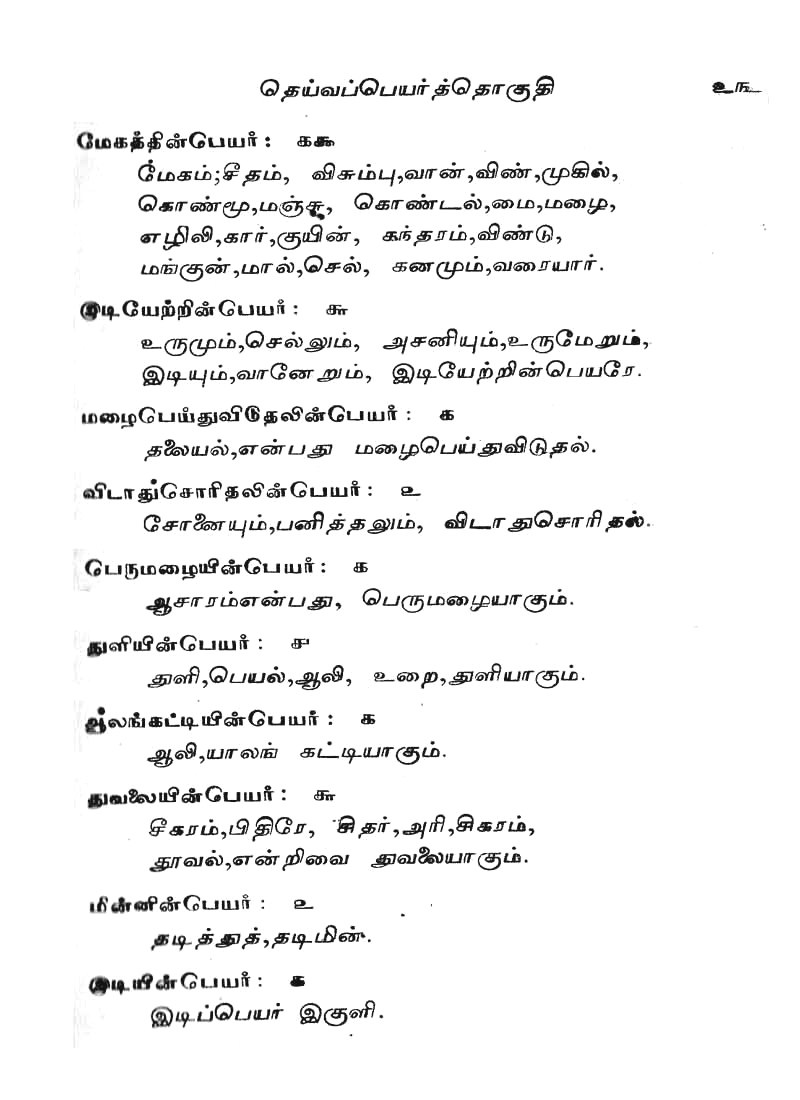 தெய்வப்பெயர்த்தொகுதி ௨௩
மேகத்தின்பெயர் : ௧௯
மேகம்;சீதம், விசும்பு,வான்,விண்,முகில்,
கொண்மூ,மஞ்சு, கொண்டல்,மை,மழை,
எழிலி,கார்,குயின், கந்தரம்,விண்டு,
மங்குன்,மால்,செல், கனமும்,வரையார்.
இடியேற்றின்பெயர் : ௬
உருமும்,செல்லும், அசனியும்,உருமேறும்,
இடியும்,வானேறும், இடியேற்றின்பெயரே.
மழைபெய்துவிடுதலின்பெயர் : ௧
தலையல்,என்பது மழைபெய்துவிடுதல்.
விடாதுசொரிதலின்பெயர் : ௨
சோனையும்,பனித்தலும், விடாதுசொரிதல்.
பெருமழையின்பெயர் : ௧
ஆசாரம்என்பது, பெருமழையாகும்.
துளியின்பெயர் : ௪
துளி,பெயல்,ஆலி, உறை,துளியாகும்.
ஆலங்கட்டியின்பெயர் : ௧
ஆலி,யாலங் கட்டியாகும்.
துவலையின்பெயர் : ௬
சீகரம்,பிதிரே, சிதர்,அரி,சிகரம்,
தூவல்,என்றிவை துவலையாகும்.
மின்னின்பெயர் : ௨
தடித்துத்,தடிமின்.
இடியின்பெயர் : ௧
இடிப்பெயர் இகுளி.